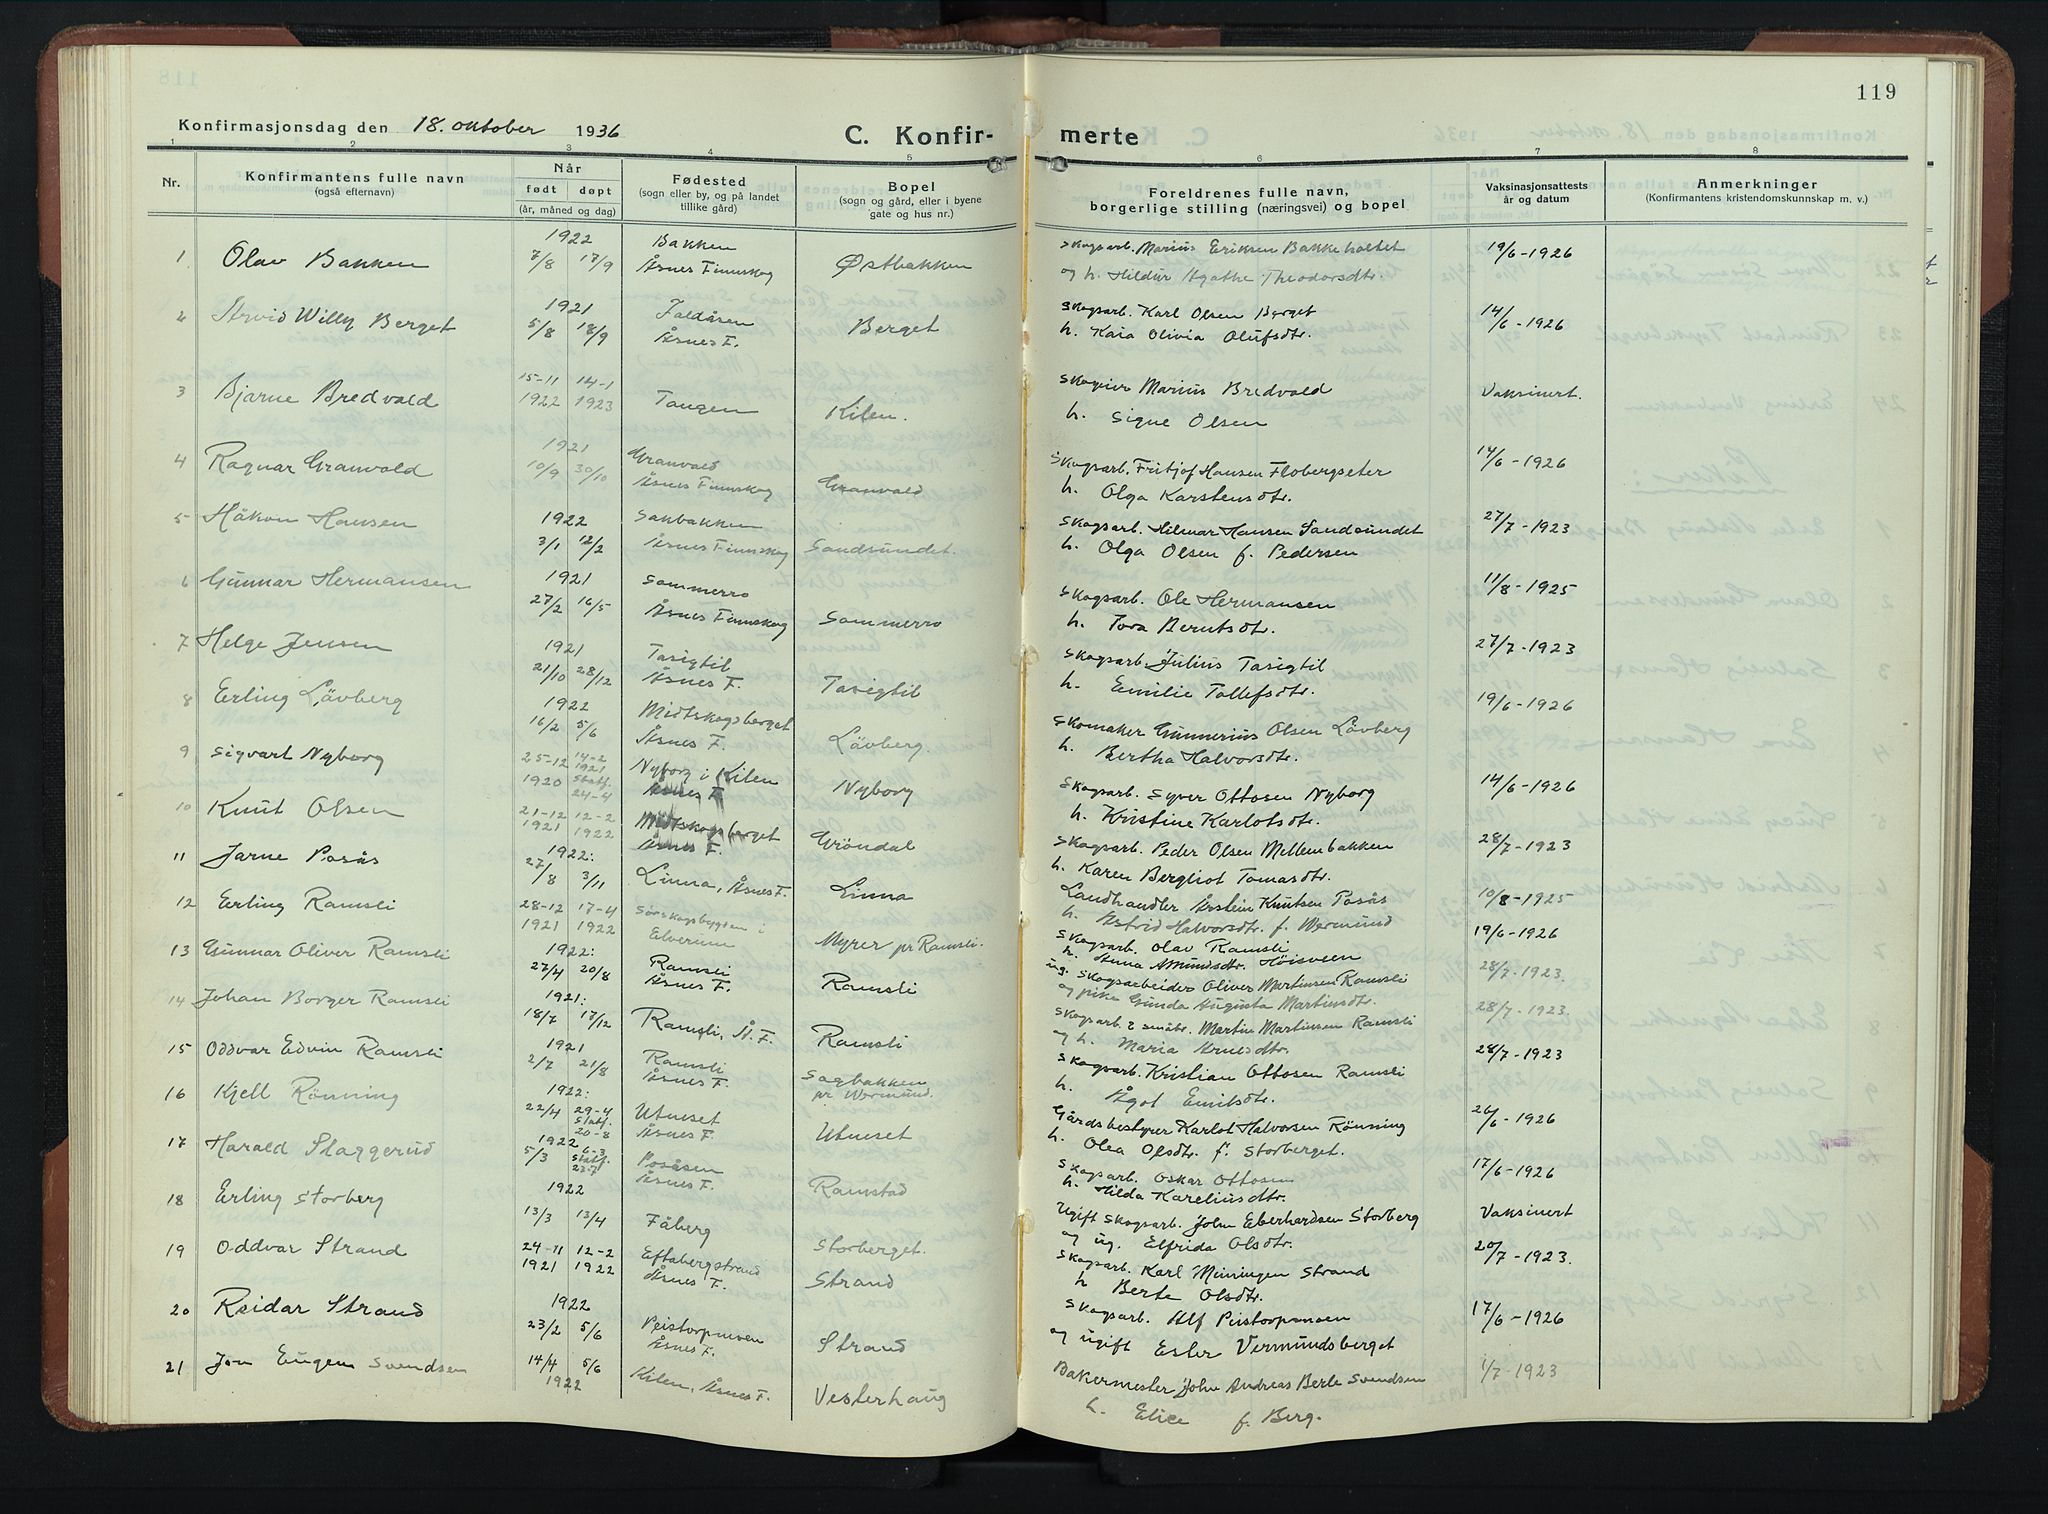 119
Konfirmasjonsdag den 18. oktober 1936 C. Konfir- merte
1 2 3 4 5 6 7 8
Nr. Konfirmantens fulle navn (også efternavn) Når født døpt (år, måned og dag) Fødested (sogn eller by, og på landet tillike gård) Bopel (sogn og gård, eller i byene gate og hus nr.) Foreldrenes fulle navn, borgerlige stilling (næringsvei) og bopel Vaksinasjonsattests år og datum Anmerkninger (Konfirmantens kristendomskunnskap m. v.)
1 Olav Bakken 1922 7/8 17/9 Bakken Åsnes Finnskog Østbakken Skogsarb. Marius Eriksen Bakkeholtet og h. Hildur Agathe Theodorsdtr. 19/6-1926
2 Arvid Willy Berget 1921 5/8 18/9 Faldåsen Åsnes F. Berget Skogsarb. Karl Olsen Berget h. Kaia Olivia Olufsdtr. 14/6-1926
3 Bjarne Bredvald 15-11 1922 14-1 1923 Tangen Kilen. Skogeier Marius Bredvald h. Signe Olsen Vaksinert.
4 Ragnar Granvald 1921 10/9 30/10 Granvald Åsnes Finnskog Granvald Skogsarb. Fritjof Hansen Flobergseter h. Olga Karstensdtr. 14/6-1926
5 Håkon Hansen 1922 3/1 12/2 Sakbakken Åsnes Finnskog Sandsundet. Skogsarb. Hilmar Hansen Sandsundet h. Olga Olsen f. Pedersen 27/7-1923
6 Gunnar Hermansen 1921 27/2 16/5 Sommerro Åsnes Finnskog Sommerro Skogsarb. Ole Hermansen h. Tora Berntsdtr. 11/8-1925
7 Helge Jensen 1921 21/10 28/12 Tasigtil Åsnes F. Tasigtil Skogsarb. Julius Tasigtil h. Emilie Tollefsdtr. 27/7-1923
8 Erling Lövberg 1922 16/2 5/6 Midtskogsberget Åsnes F. Lövberg. Skomaker Gunnerius Olsen Lövberg h. Bertha Halvorsdtr. 19/6-1926
9 Sigvart Nyborg 25-12 1920 14-2 1921 Statf. 24-4 Nyborg i Kilen Åsnes F. Nyborg Skogsarb. Syver Ottosen Nyborg h. Kristine Karlotsdtr. 14/6-1926
10 Knut Olsen 21-12 1921 12-2 1922 Midtskogsberget Åsnes F. Gröndal Skogsarb. Peder Olsen Mellembakken h. Karen Bergliot Tomasdtr. 28/7-1923
11 Jarne Posås 1922: 27/8 3/11 Linna, Åsnes F. Linna Landhandler Arstein Knutsen Posås h. Astrid Halvorsdtr. f. Wermund 10/8-1925
12 Erling Ramsli 28-12 1921 17-4 1922 Sørskogsbygden i Elverum Myrer pr Ramsli. Skogsarb. Olav Ramsli h. Anna Amundsdtr. Høisveen 19/6-1926
13 Gunnar Oliver Ramsli 1922: 27/4 20/8 Ramsli Åsnes F. Ramsli ug. skogsarbeider Oliver Martinsen Ramsli og pike Gunda Augusta Martinsdtr. 28/7-1923.
14 Johan Borger Ramsli 1921: 18/7 17/12 Ramsli, Å. F. Ramsli Skogsarb. & småbr. Martin Martinsen Ramsli og h. Maria Arnesdtr. 28/7-1923.
15 Oddvar Edvin Ramsli 1921 2/7 21/8 Ramsli Åsnes F. Sagbakken pr Wermund. Skogsarb. Kristian Ottosen Ramsli h. Ågot Emilsdtr. 28/7-1923
16 Kjell Rönning 1922: 22/4 29-4 Statf. 20-8 Utneset Åsnes F. Utneset Gårdsbestyrer Karlot Halvorsen Rönning h. Olea Olsdtr. f. Storberget. 26/6-1926
17 Harald Slaggerud 1922 5/3 6-3 Statf. 23.7 Posåsen Åsnes F. Ramstad Skogsarb. Oskar Ottosen h. Hilda Kareliusdtr. 17/6-1926
18 Erling Storberg 1922 13/3 13/4 Fåberg Storberget. Ugift skogsarb. John Eberhardsen Storberg og ug. Elfrida Olsdtr. Vaksinert
19 Oddvar Strand 24-11 1921 12-2 1922 Eftabergstrand Åsnes F. Strand Skogsarb. Karl Menningen Strand h Berte Olsdtr. 20/7-1923.
20 Reidar Strand 1922 23/2 5/6 Peistorpmoen Åsnes F. Strand Skogsarb. Alf Peistorpmoen og ugift Ester Vermundsberget 17/6-1926
21 Jon Eugen Svendsen 14/4 5/6 1922 Kilen, Åsnes F. Vesterhaug Bakermester John Andreas Berle Svendsen h. Elice f. Berg. 1/7-1923